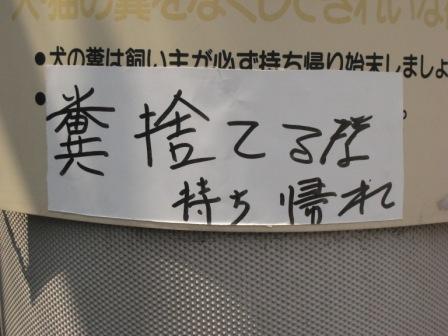 犬猫の糞をなくしてきれいな
●犬の糞は飼い主が必ず持ち帰り始末しましょ
●
糞捨てるな
持ち帰れ